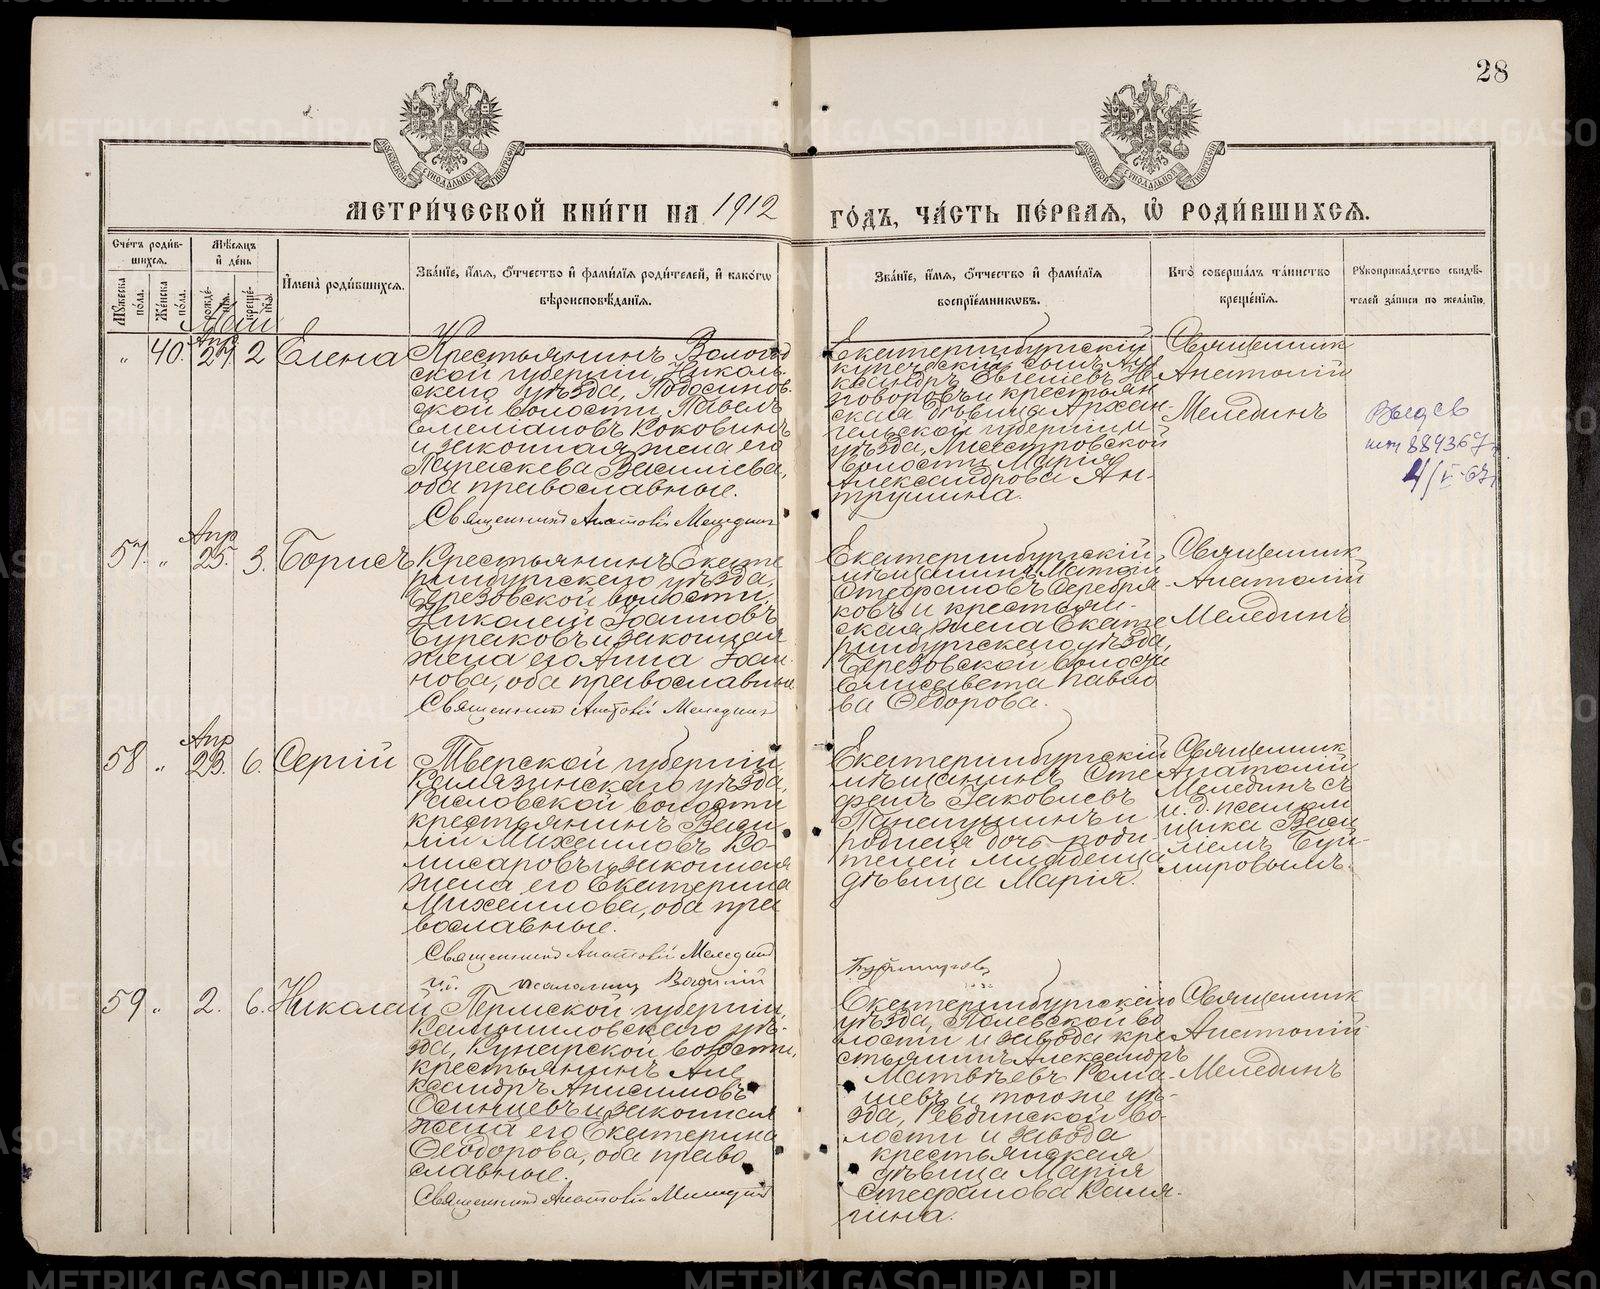 28
МЕТРИ́ЧЕСКОЙ КНИ́ГИ НА 1912 ГО́ДЪ, ЧА́СТЬ ПЕ́РВАЯ, Ѡ РОДИ́ВШИХСЯ.
Сче́тъ роди́в-
шихся.
Му́жеска по́ла.
Же́нска по́ла.
Мѣ́сяцъ
и́ де́нь
рожде́-
нія.
креще́-
нія.
И҆мена̀ роди́вшихся.
Зва́ніе, и҆́мя, ѻ҆́тчество и҆ фами́лія роди́телей, и҆ како́гѡ
вѣроисповѣ́данія.
Зва́ніе, и҆́мя, ѻ҆́тчество и҆ фами́лія
воспріе́мниковъ.
Кто̀ соверша́лъ та́инство
креще́нія.
Рꙋкоприкла́дство свидѣ́-
телей за́писи по жела́нію.
Май
Апр
„ 40. 27. 2 Елена
Крестьянинъ Вологод
ской губерніи, Николь-
скаго уѣзда, Подосинов-
ской волости, Павелъ
Емеліановъ Коковинъ
и законная жена его
Параскева Василіева,
оба православные.
Священникъ Анатолій Мелединъ
Екатеринбургскій
купеческій сынъ Але
ксандръ Евгеніевъ
и крестьян
ская дѣвица Архан-
гельской губерніи и
уѣзда, Лисестровской
волости Марія
Александрова Ан-
трушина.
Священник
Анатолій
Мелединъ
Выд св
884367
Апр
57. „ 25. 3. Борисъ
Крестьянинъ Екате
ринбургскаго уѣзда,
Березовской волости,
Николай Іоанновъ
Бураковъ и законная
жена его Анна Іоан-
нова, оба православные
Священникъ Анатолій Мелединъ
Екатеринбургскій
мѣщанинъ Матѳій
Стефановъ Серебря-
ковъ и крестьян-
ская жена Екате
ринбургскаго уѣзда,
Березовской волости
Елисавета Павло
ва Ѳедорова.
Священник
Анатолій
Мелединъ
Апр
58 „ 23. 6. Сергій
Тверской губерніи
Калязинскаго уѣзда,
Расловской волости
крестьянинъ Васи
лій Михаиловъ Ко-
мисаровъ и законная
жена его Екатерина
Михаилова, оба пра
вославные.
Священникъ Анатолій Мелединъ
и.д. псаломщ Василій
Екатеринбургскій
мѣщанинъ Сте
фанъ Іаковлевъ
Панпушинъ и
родная дочь роди
телей младенца
дѣвица Марія.
Буймировъ
Священник
Анатолій
Мелединъ съ
и. д. псалом
щика Васи
ліемъ Буй-
мировымъ.
59 „ 2. 6. Николай
Пермской губерніи,
Камышловскаго уѣ-
зда, Кунарской волости,
крестьянинъ Але
ксандръ Анисимовъ
Осинцевъ и законная
жена его Екатерина
Ѳеодорова, оба право
славные.
Священникъ Анатолій Мелединъ
Екатеринбургскаго
уѣзда, Полевской во
лости и завода кре
стьянинъ Александръ
Матвѣевъ Рома-
шевъ и того же уѣ-
зда, Ревдинской во-
лости и завода
крестьянская
дѣвица Марія
Стефанова Каля-
гина.
Священник
Анатолій
Мелединъ
METRIKI.GASO-URAL.RU